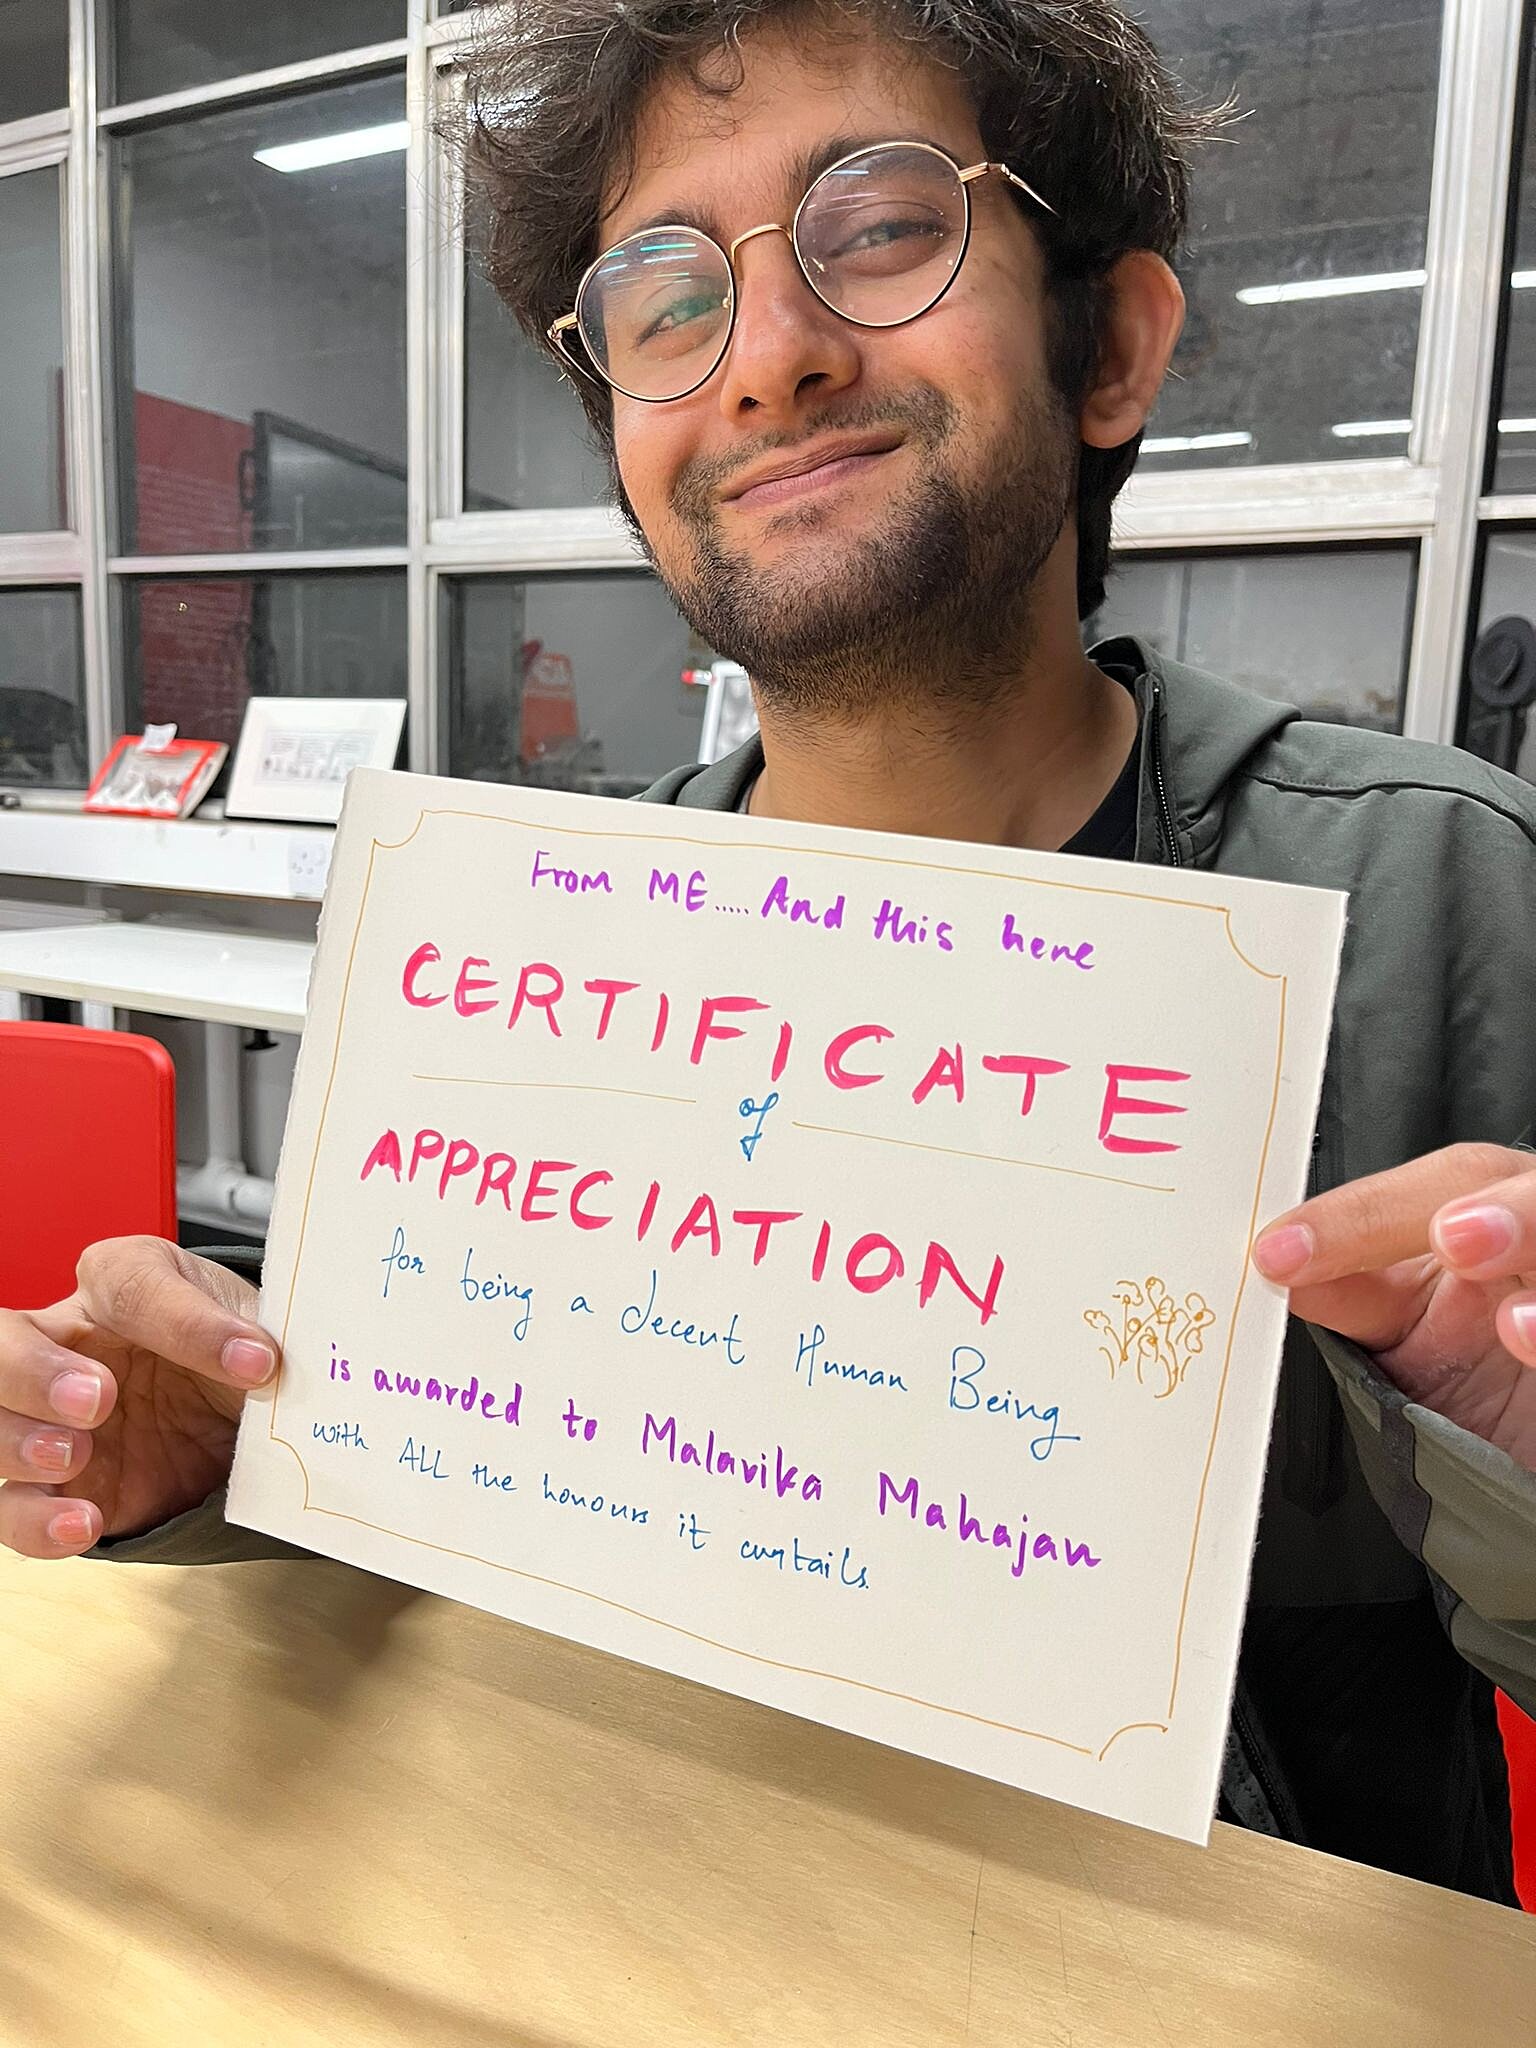 From ME..... And this here
CERTIFICATE
of
APPRECIATION
for being a decent Human Being
is awarded to Malavika Mahajan
with ALL the honours it curtails.